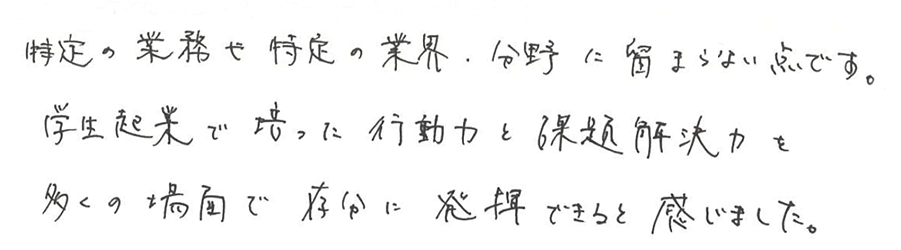 特定の業務や特定の業界・分野に留まらない点です。
学生起業で培った行動力と課題解決力を
多くの場面で存分に発揮できると感じました。